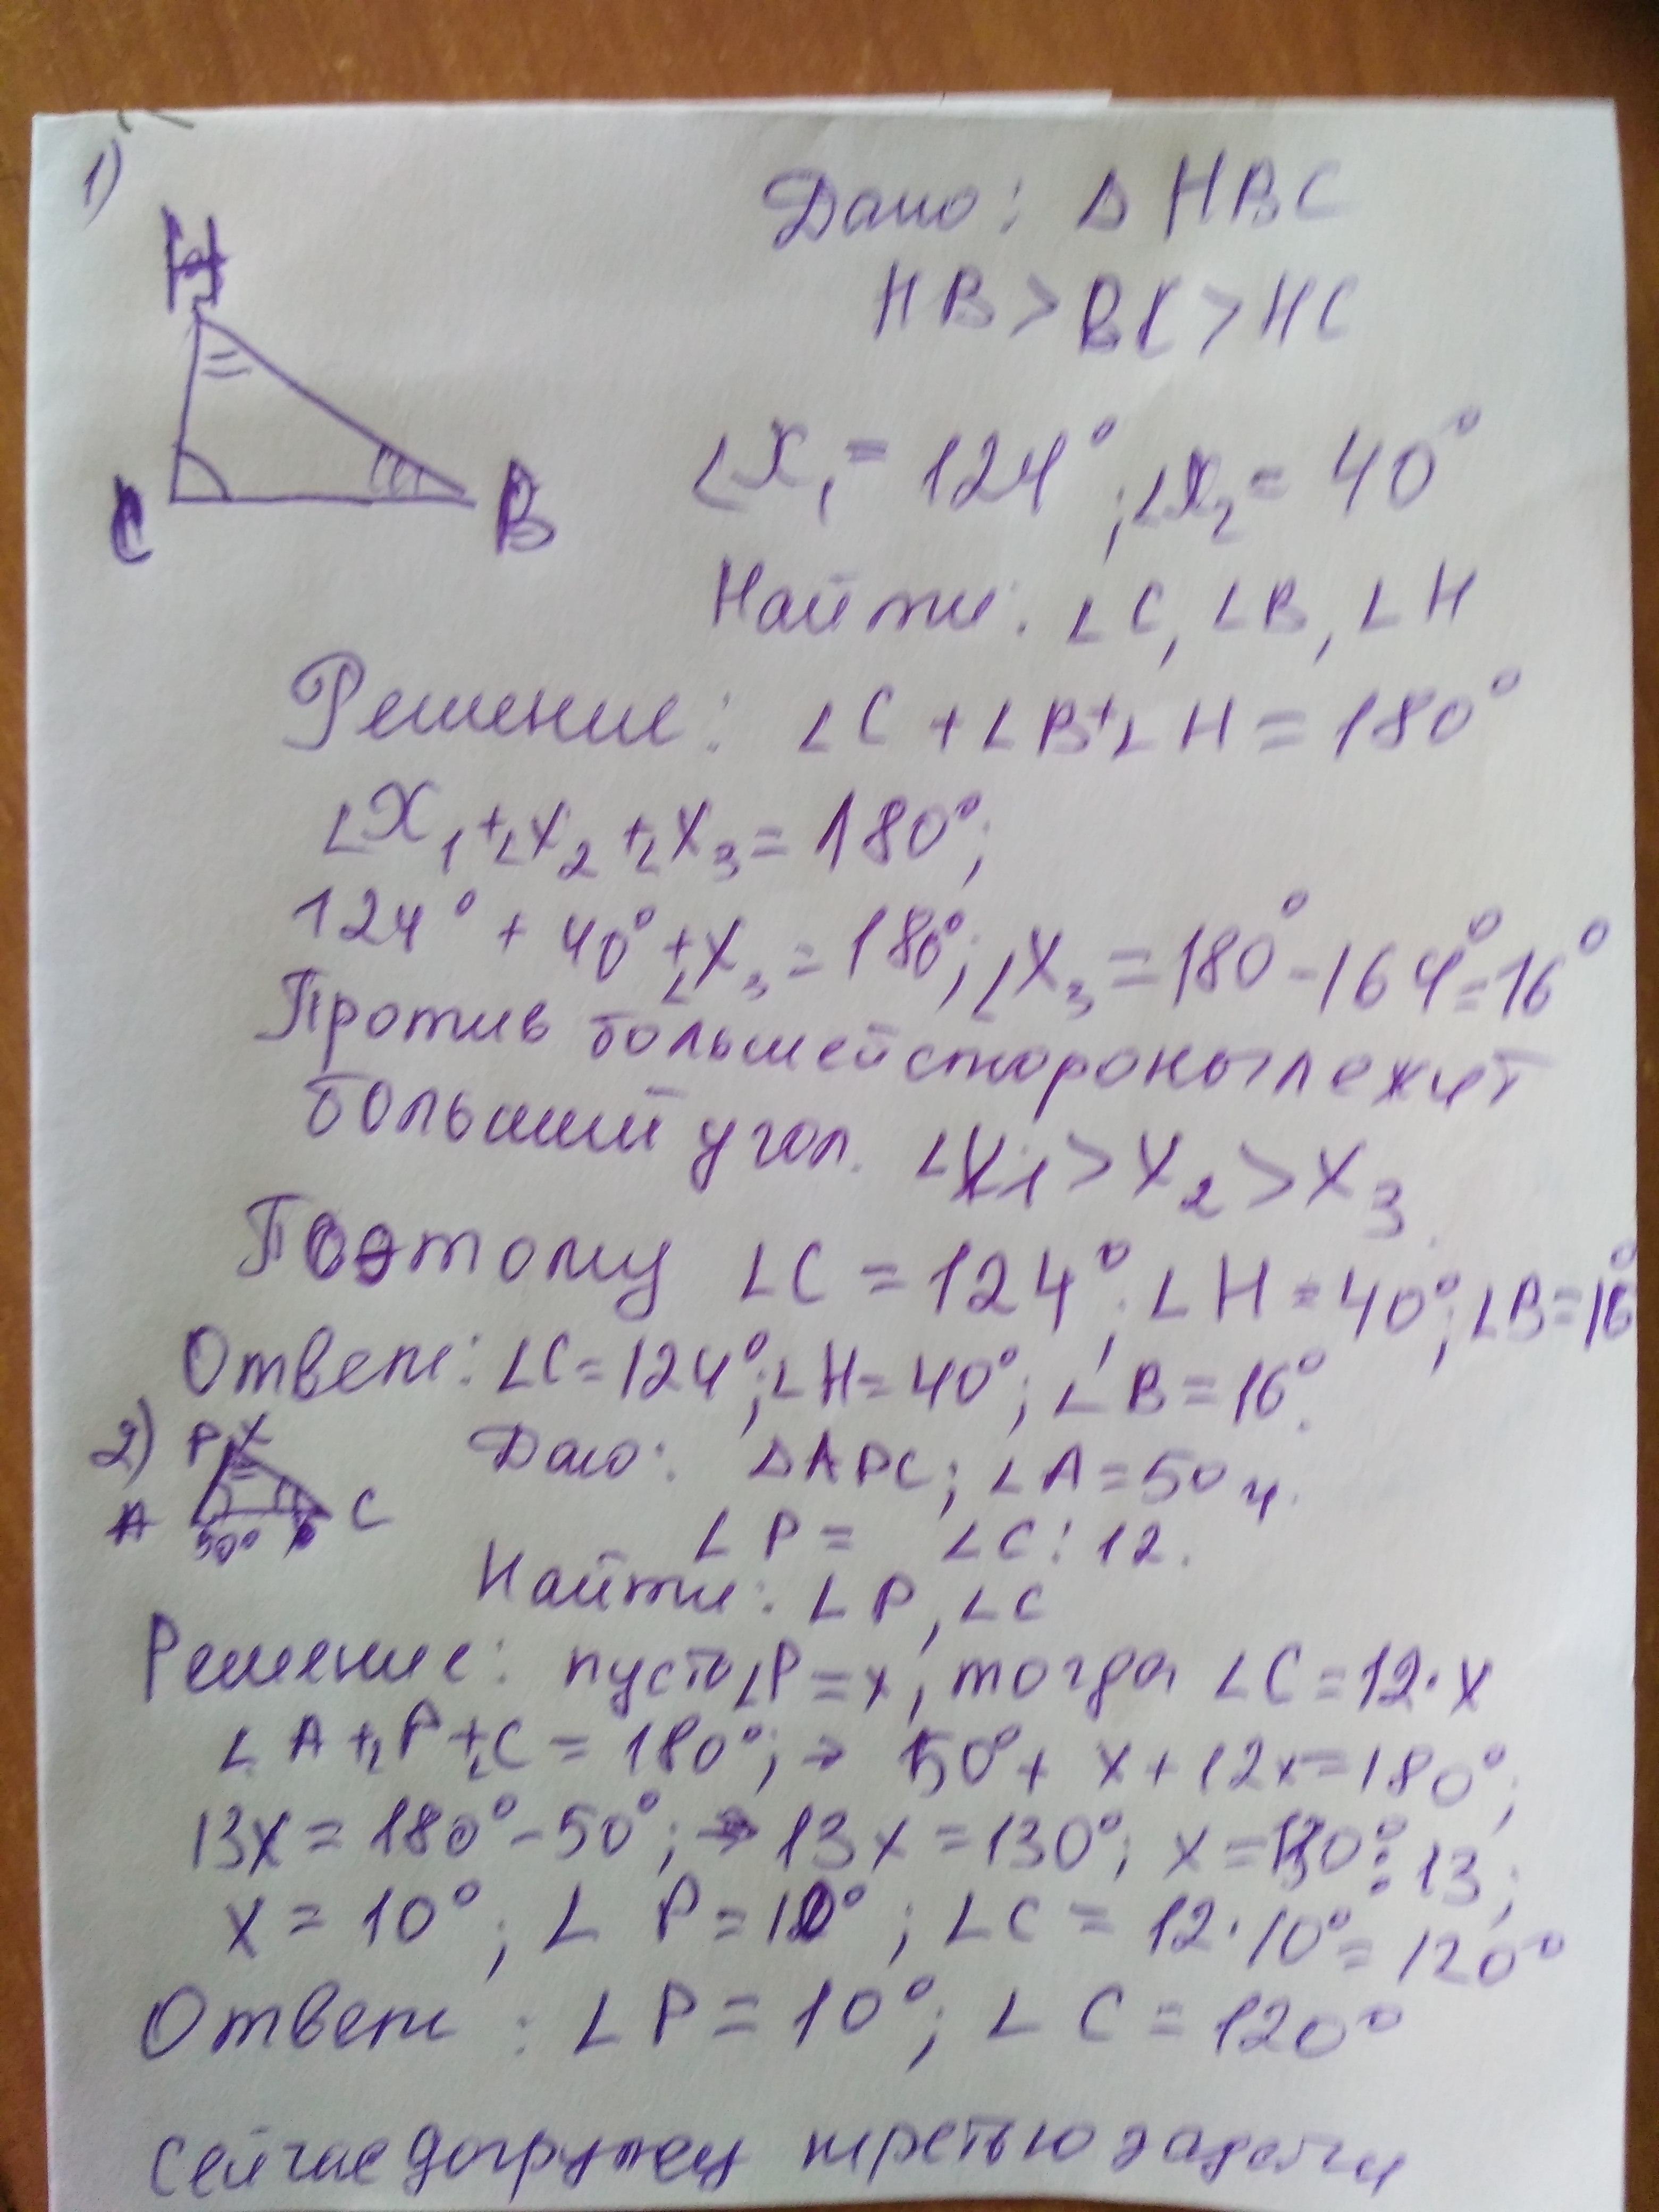 1)
H
C
B
Дано: Δ HBC
HB > BC > HC
∠X₁ = 124°; ∠X₂ = 40°
Найти: ∠C, ∠B, ∠H
Решение: ∠C + ∠B + ∠H = 180°
∠X₁ + ∠X₂ + ∠X₃ = 180°;
124° + 40° + ∠X₃ = 180°; ∠X₃ = 180° - 164° = 16°
Против большей стороны лежит
больший угол. ∠X₁ > X₂ > X₃.
Поэтому ∠C = 124°; ∠H = 40°; ∠B = 16°
Ответ: ∠C = 124°; ∠H = 40°; ∠B = 16°.
2) P X
A
50°
C
Дано: ΔAPC; ∠A = 50
∠P = ∠C : 12.
Найти: ∠P, ∠C
Решение: пусть ∠P = x, тогда ∠C = 12·x
∠A + ∠P + ∠C = 180°; → 50° + x + 12x = 180°;
13x = 180° - 50°; → 13x = 130°; x = 130° : 13;
x = 10°; ∠P = 10°; ∠C = 12·10° = 120°
Ответ: ∠P = 10°; ∠C = 120°
Сейчас догружу третью задачу